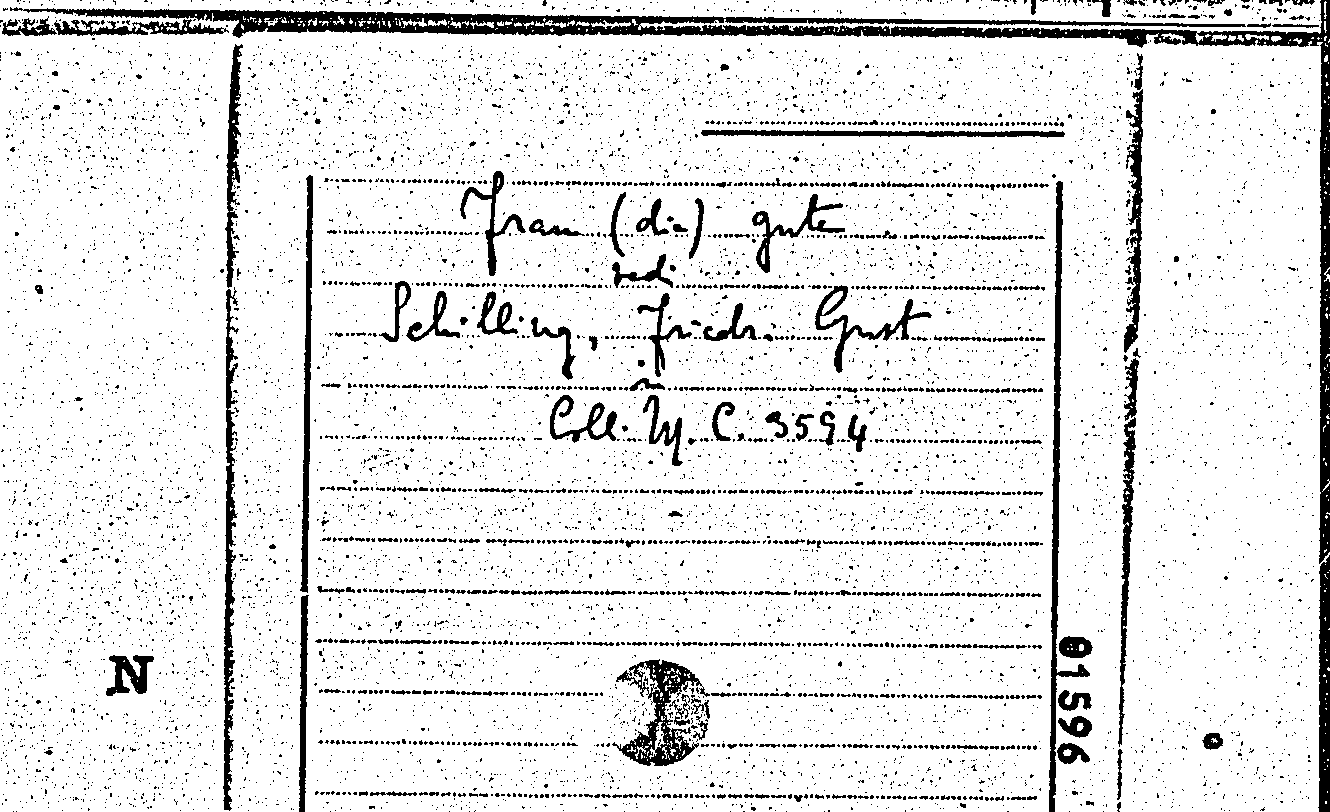 Frau (die) gute
vedi
Schilling, Friedr. Gust
in
Coll. M. C. 3594
N
01596